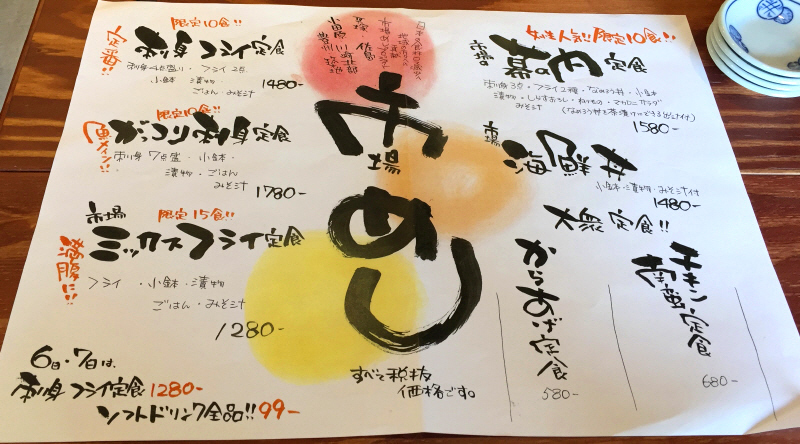 限定10食!!
刺身フライ定食
刺身4点盛り・フライ2点
小鉢・漬物
ごはん・みそ汁
1480-
限定10食!!
魚メイン!!
がっつり刺身定食
刺身7点盛・小鉢・
漬物・ごはん
みそ汁
1780-
市場
限定15食!!
ミックスフライ定食
満腹に!!
フライ・小鉢・漬物
ごはん・みそ汁
1280-
6日・7日は、
刺身フライ定食1280-
ソフトドリンク全品!!99-
市場めし
すべて税抜
価格です。
女性人気!!限定10食!!
市場の
幕の内定食
刺身3点・フライ2種・なめろう丼・小鉢
漬物・しらすおろし・和のもの・マカロニサラダ
みそ汁
1580-
市場
海鮮丼
小鉢・漬物・みそ汁付
1480-
大衆定食!!
チキン南蛮定食
680-
からあげ定食
580-